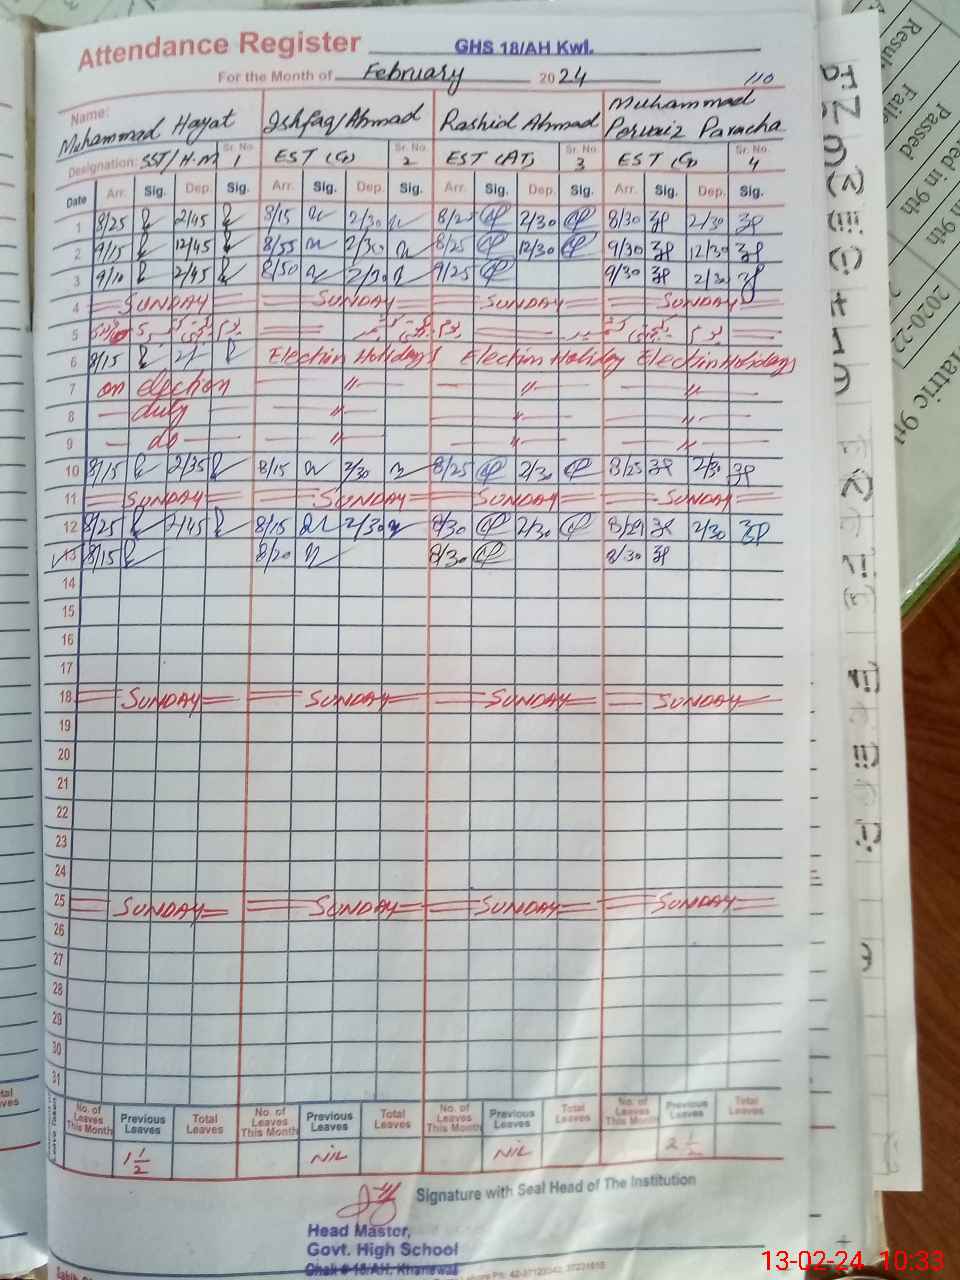 Attendance Register GHS 18/AH Kwl.
For the Month of February 2024 110
Name: Muhammad Hayat Ishfaq Ahmad Rashid Ahmad Muhammad Pervaiz Paracha
Designation: SST/H.M Sr. No. 1 EST (G) Sr. No. 2 EST (AT) Sr. No. 3 EST (G) Sr. No. 4
Date Arr. Sig. Dep. Sig. Arr. Sig. Dep. Sig. Arr. Sig. Dep. Sig. Arr. Sig. Dep. Sig.
1 8/25 2/45 8/15 2/30 8/25 2/30 8/30 2/30
2 9/15 12/45 8/55 2/30 8/25 12/30 9/30 12/30
3 9/10 2/45 8/50 2/30 9/25 9/30 2/30
4 SUNDAY SUNDAY SUNDAY SUNDAY
5
6 8/15 Election Holidays Election Holiday Election Holidays
7 on election 〃 〃 〃
8 duty 〃 〃 〃
9 do 〃 〃 〃
10 8/15 2/35 8/15 2/30 8/25 2/30 8/25 2/30
11 SUNDAY SUNDAY SUNDAY SUNDAY
12 8/25 2/45 8/15 2/30 8/30 2/30 8/29 2/30
13 8/15 8/20 8/30 8/30
14
15
16
17
18 SUNDAY SUNDAY SUNDAY SUNDAY
19
20
21
22
23
24
25 SUNDAY SUNDAY SUNDAY SUNDAY
26
27
28
29
30
31
No. of Leaves This Month Previous Leaves Total Leaves No. of Leaves This Month Previous Leaves Total Leaves No. of Leaves This Month Previous Leaves Total Leaves No. of Leaves This Month Previous Leaves Total Leaves
1 1/2 NIL NIL 2 1/2
Signature with Seal Head of The Institution
Head Master,
Govt. High School
Chak # 18/AH. Khanewal
13-02-24 10:33